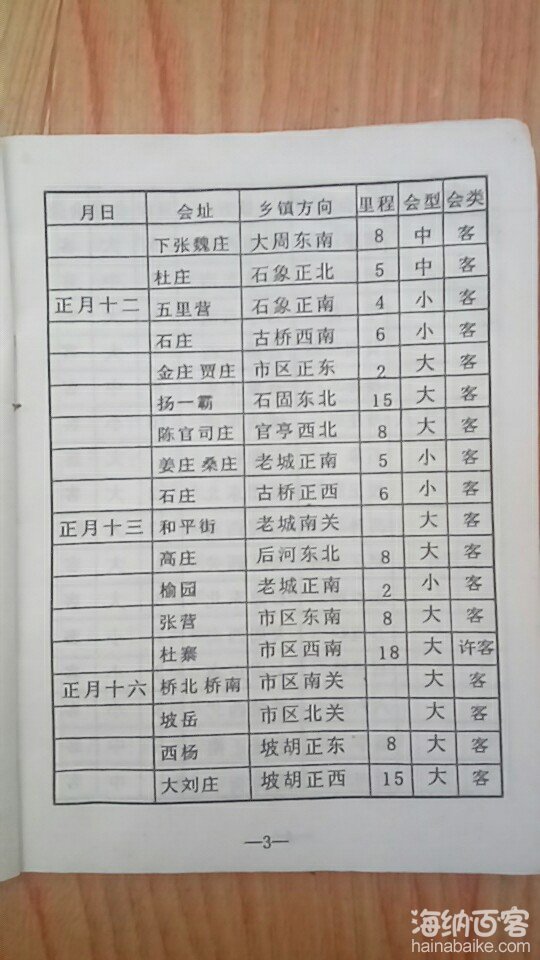 月日 会址 乡镇方向 里程 会型 会类
下张魏庄 大周东南 8 中 客
杜庄 石象正北 5 中 客
正月十二 五里营 石象正南 4 小 客
石庄 古桥西南 6 小 客
金庄 贾庄 市区正东 2 大 客
扬一霸 石固东北 15 大 客
陈官司庄 官亭西北 8 大 客
姜庄 桑庄 老城正南 5 小 客
石庄 古桥正西 6 小 客
正月十三 和平街 老城南关 大 客
高庄 后河东北 8 大 客
榆园 老城正南 2 小 客
张营 市区东南 8 大 客
杜寨 市区西南 18 大 许客
正月十六 桥北 桥南 市区南关 大 客
坡岳 市区北关 大 客
西杨 坡胡正东 8 大 客
大刘庄 坡胡正西 15 大 客
—3—
海纳百客
hainabaike.com